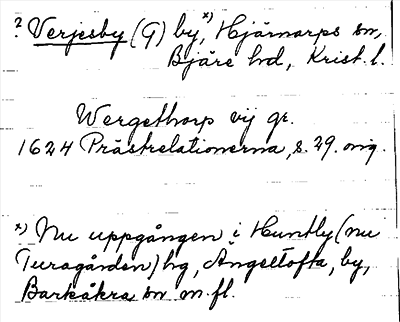 ? Verjesby (G) by, x) Hjärnarps sn,
Bjäre hd, Krist. l.
Wergethorp vij gr.
1624 Prästrelationerna, s. 29. orig.
x) Nu uppgången i Huntly (nu
Turagården) hg, Ängeltofta, by,
Barkåkra sn m. fl.